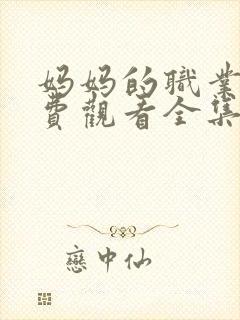 妈妈的職業
費觀看全集
戀中仙